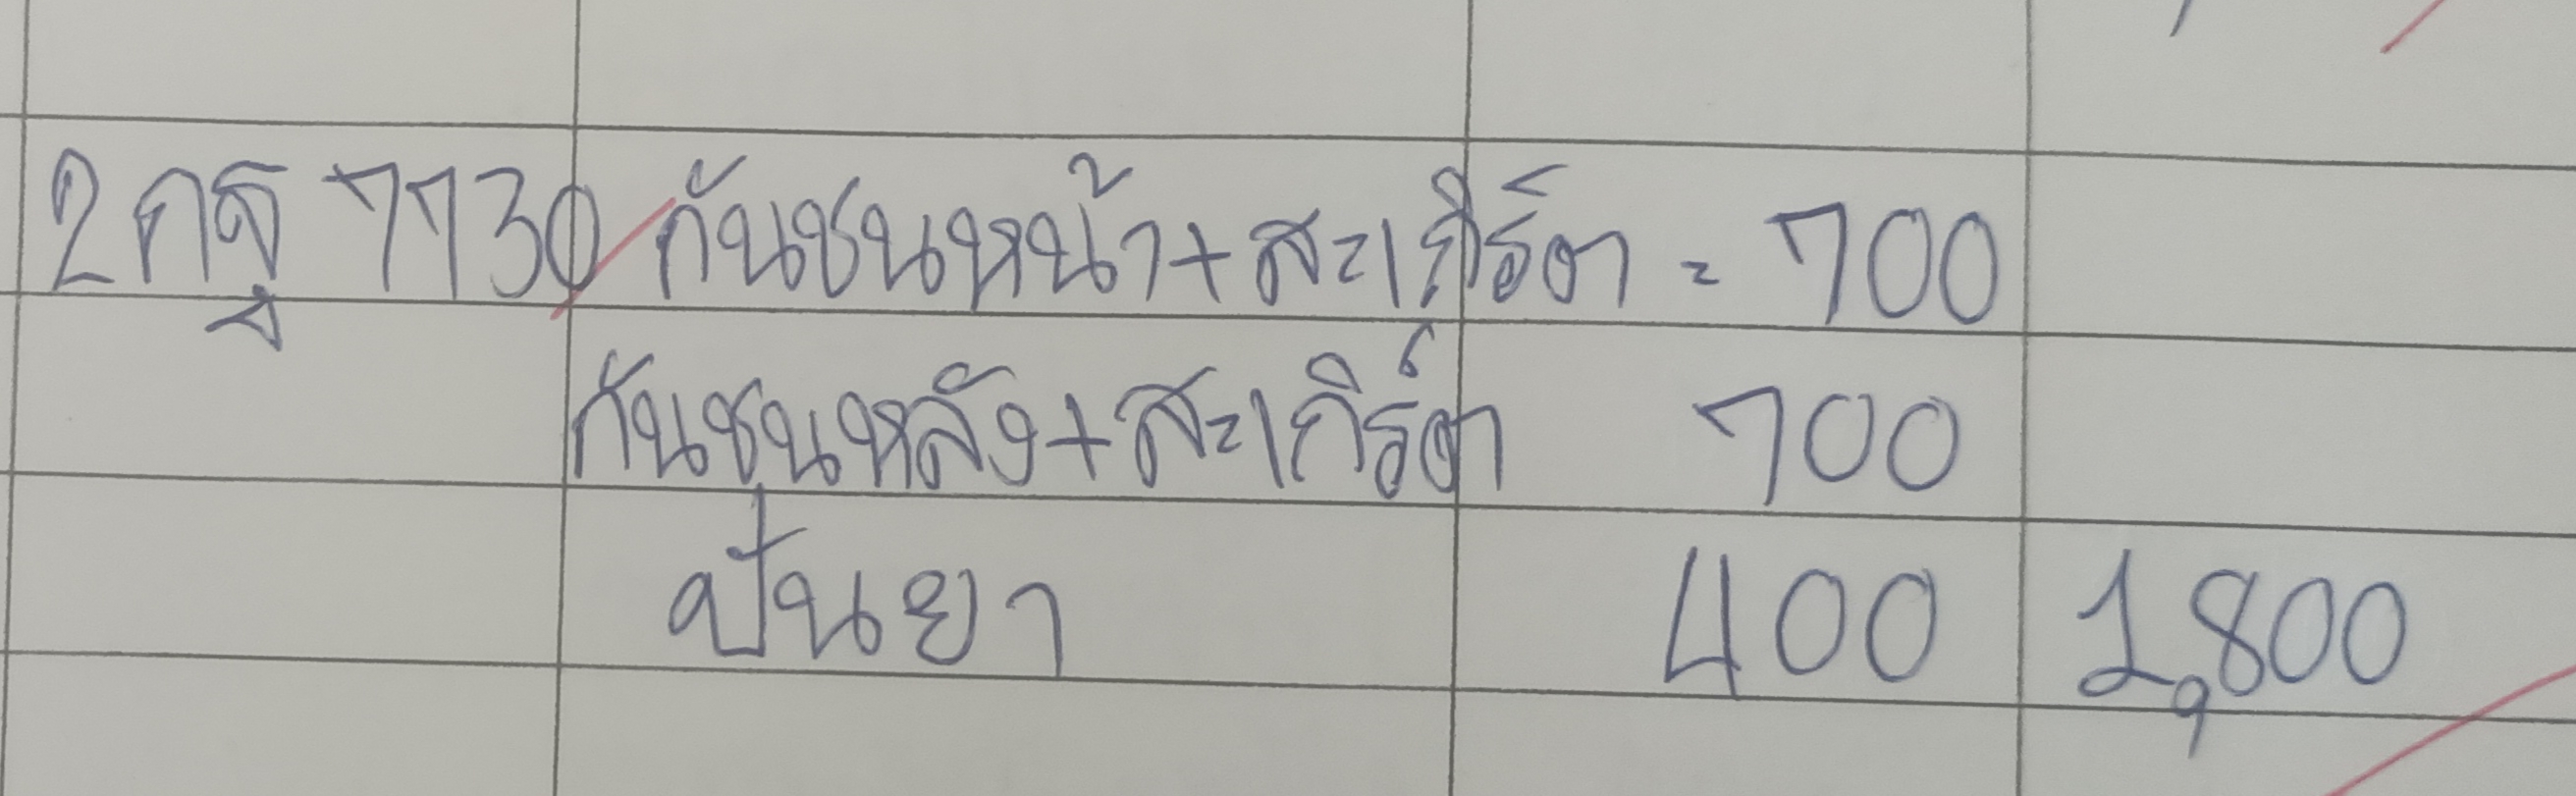 2กฐ 7730 กันชนหน้า+สะเกิร์ตา = 700
กันชนหลัง+สะเกิร์ตา 700
ปั่นยา 400 1,800